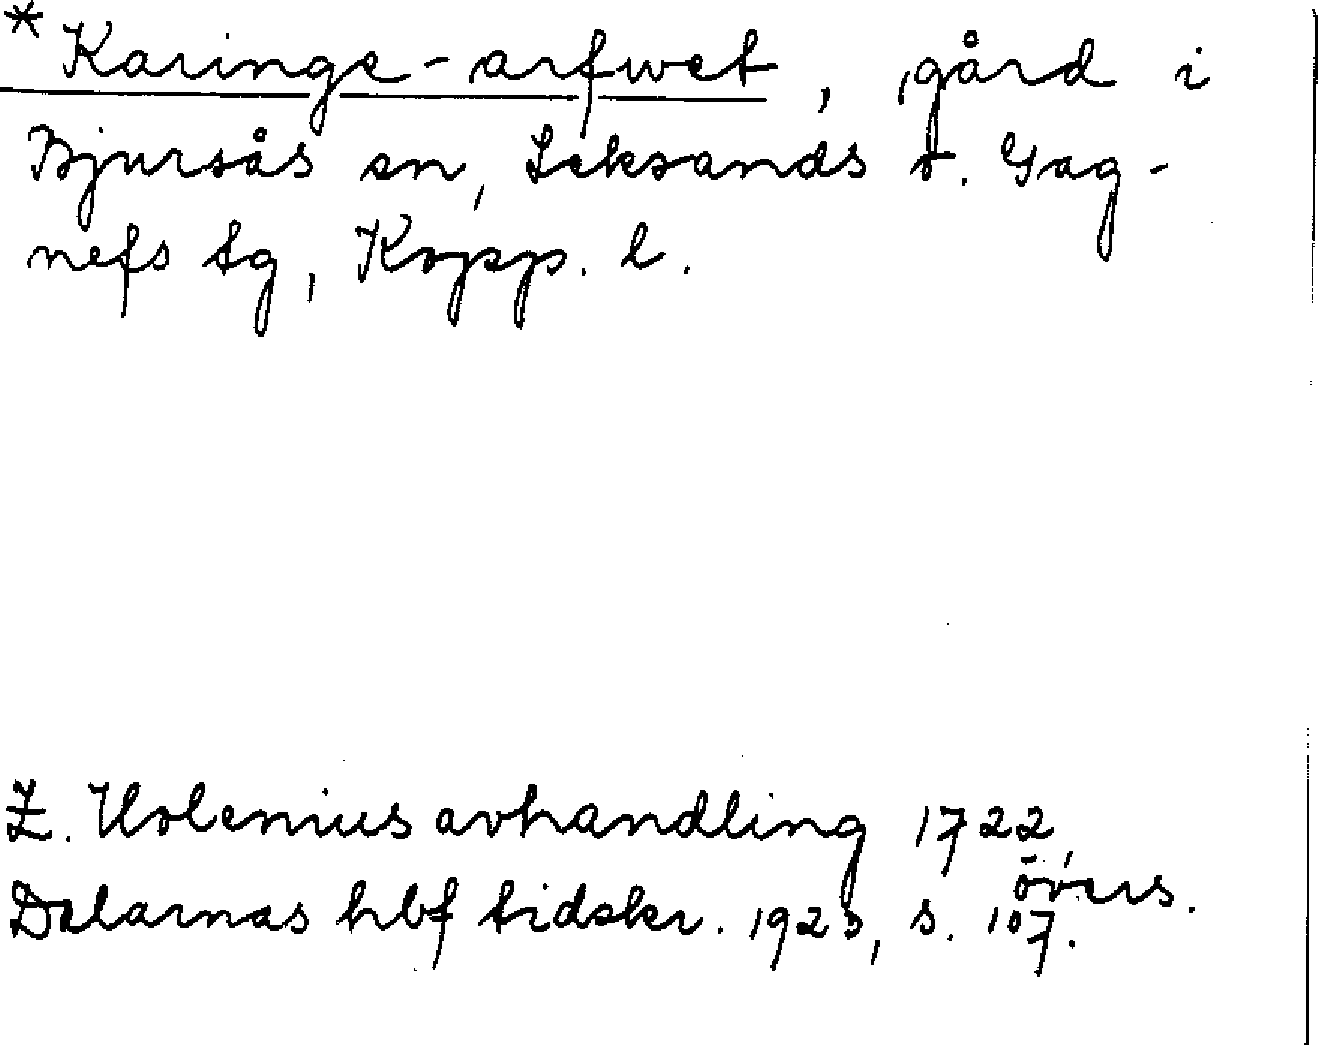 * Karinge-arfwet, gård i
Bjursås sn, Leksands o. Gag-
nefs tg, Kopp. l.
Z. Holenius avhandling 1722,
övers.
Dalarnas hbf tidskr. 1923, s. 107.